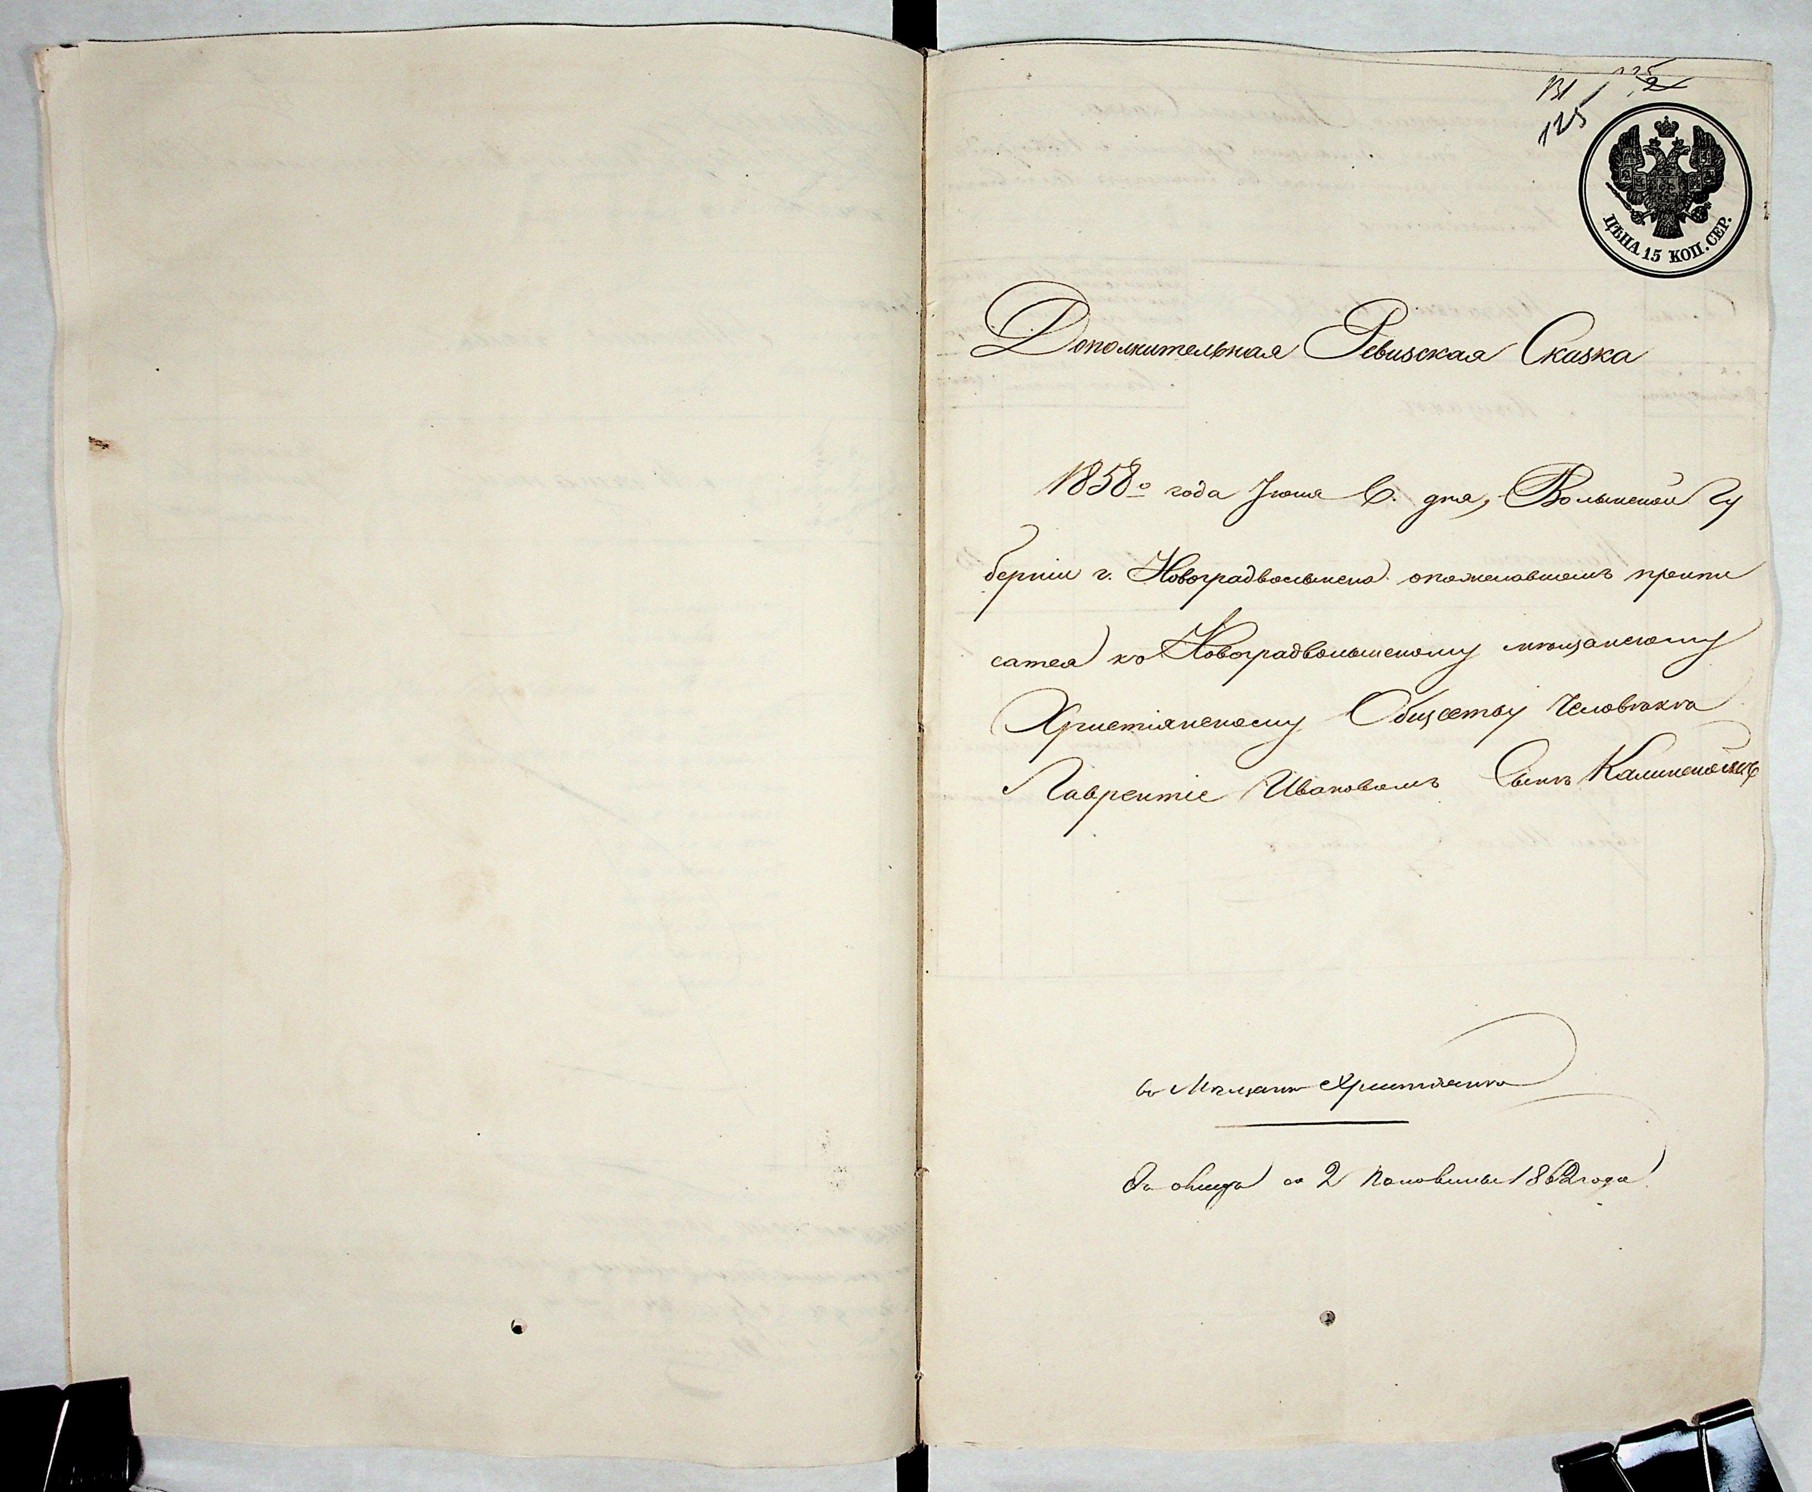 131
125
ЦѢНА 15 КОП. СЕР.
Дополнительная Ревизская Сказка
1858го года Іюня 6. дня, Волынской Гу
берніи г. Новоградволынска. о пожелавшемъ припи
саться къ Новоградволынскому мѣщанскому
Христіянскому Обществу Человѣка
Лаврентіе Ивановомъ Сынѣ Калиненскомъ
въ Мѣщанѣ Христіанѣ
со 2 половины 1862 года